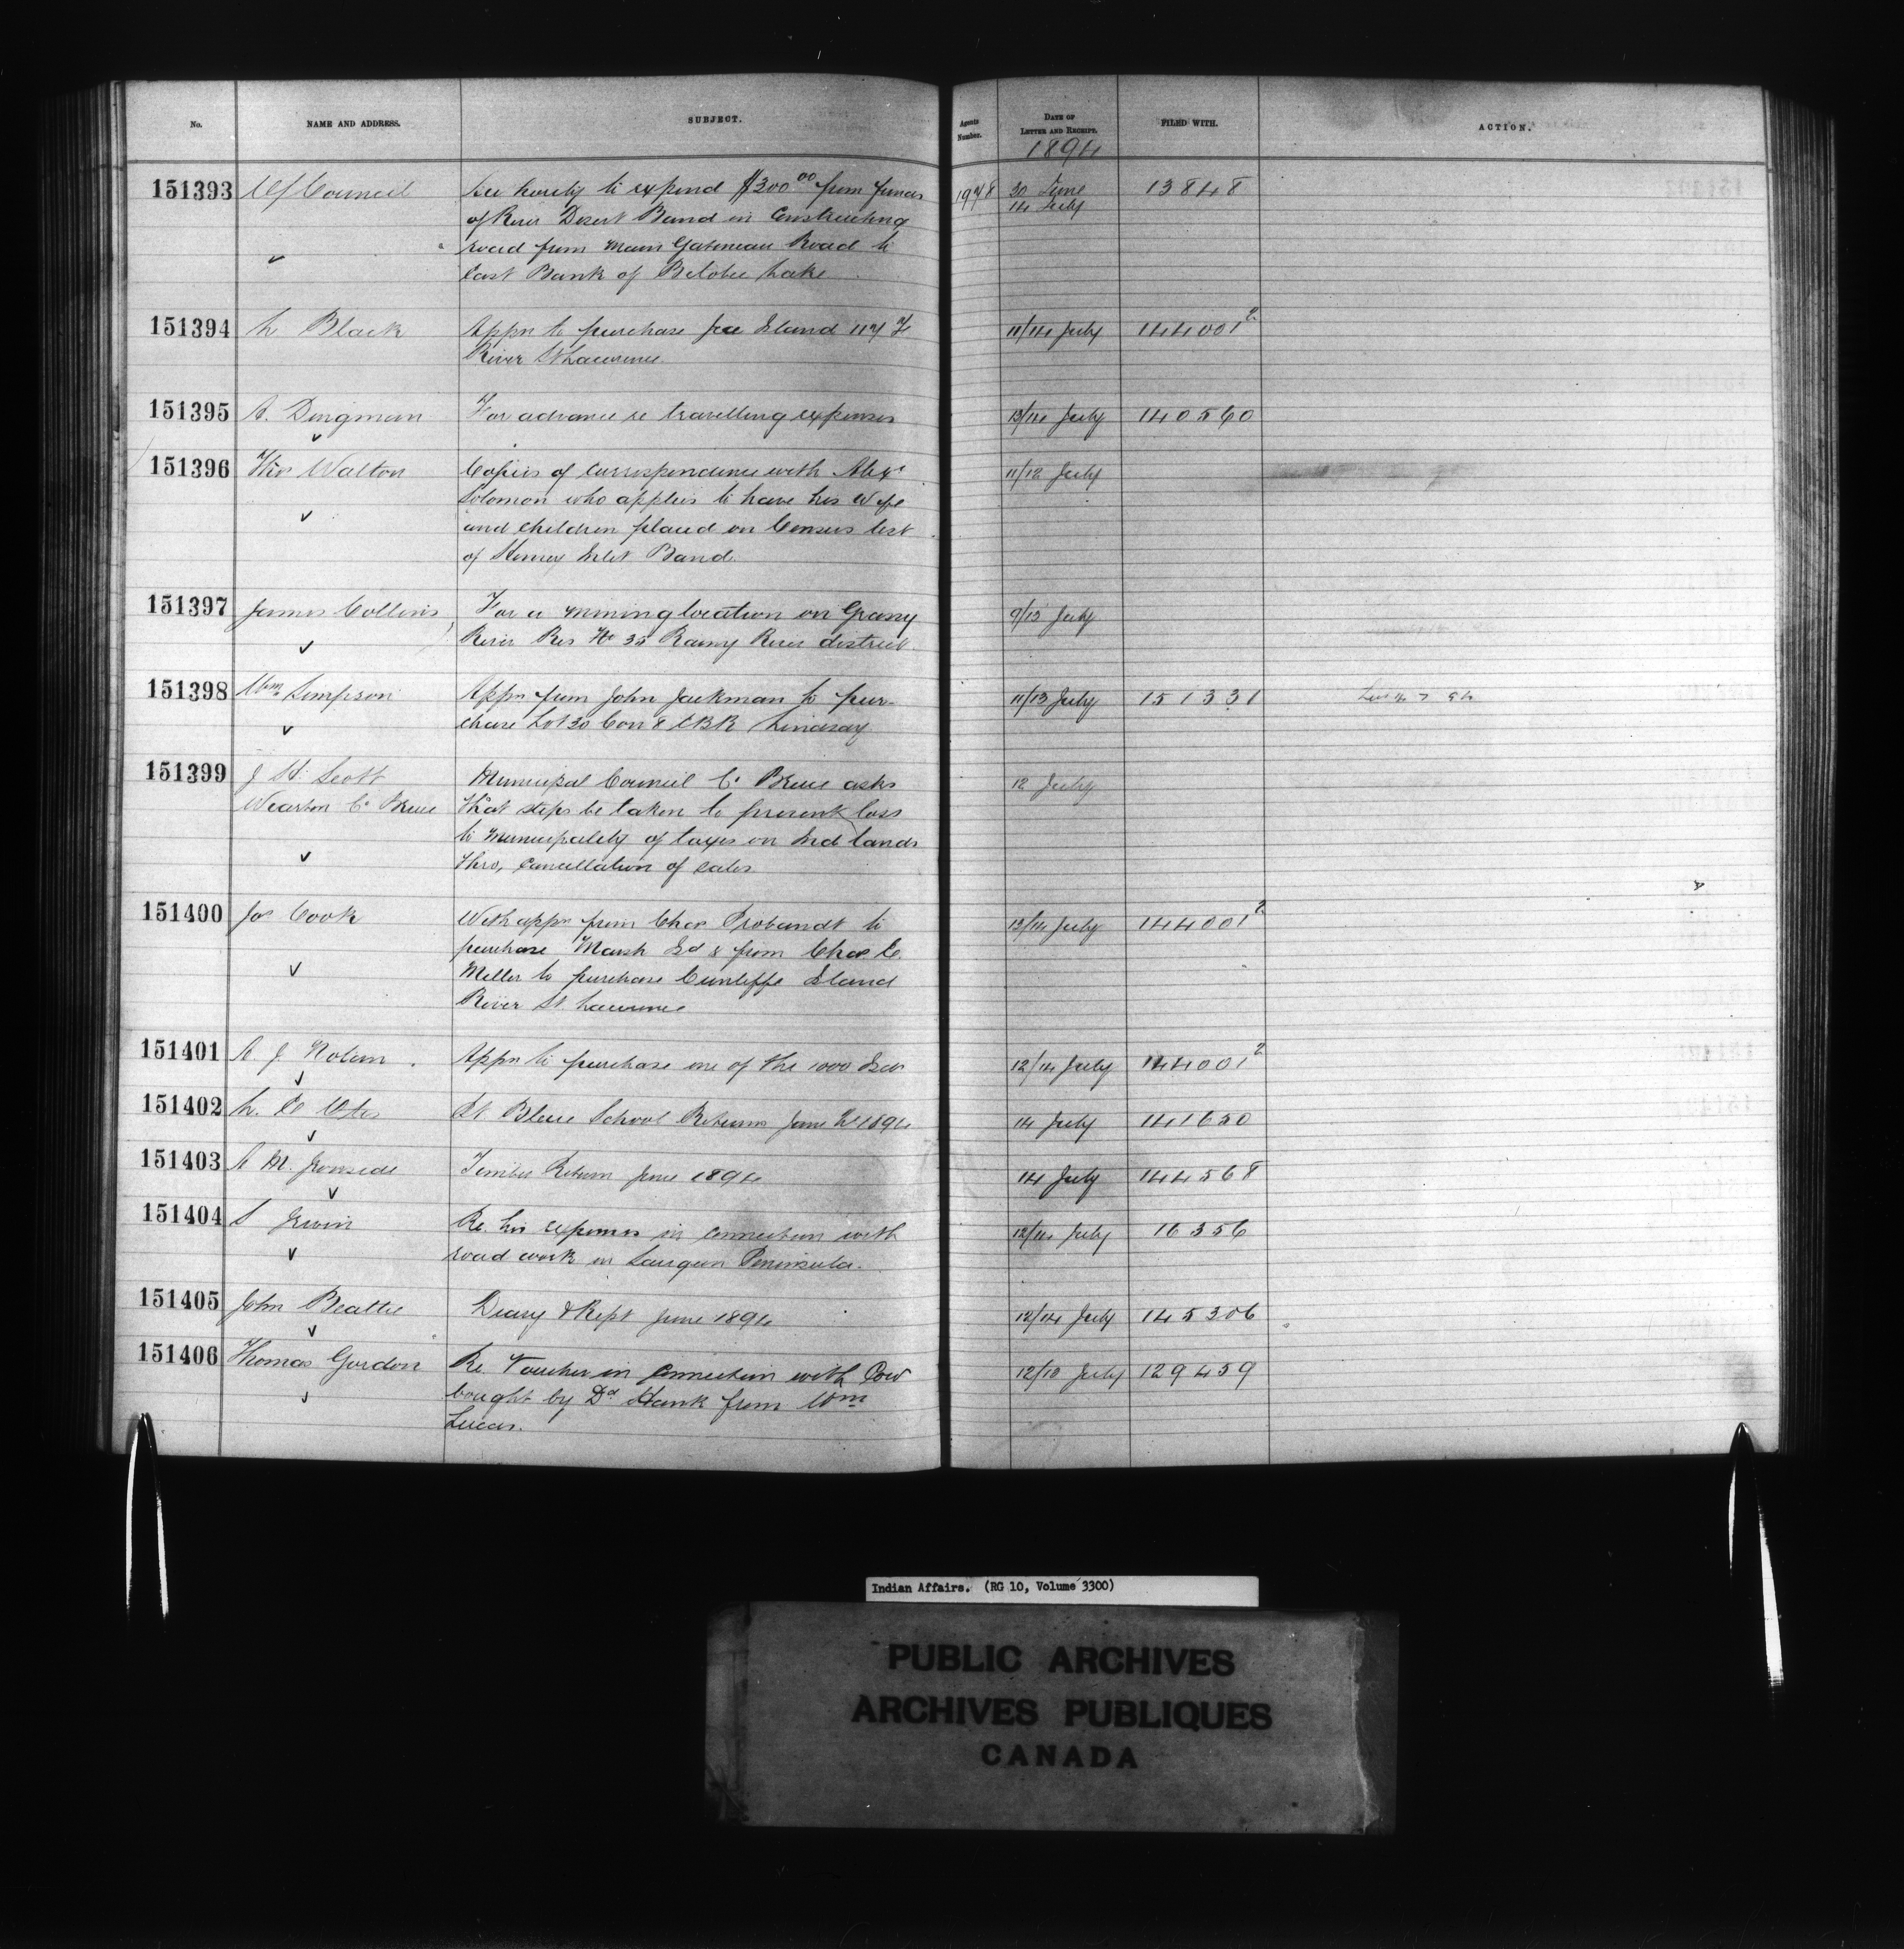 No.
NAME AND ADDRESS.
SUBJECT.
Agents Number.
DATE OF LETTER AND RECEIPT.
FILED WITH.
ACTION.
1894
151393 Council hereby to expend $300.00 from funds 1978 30 June 13848
of River Desert Band in Constructing 14 July
road from Main Gatineau Road to
East Bank of Bitobie Lake
151394 L Black Appn to purchase Island 117 F 11/14 July 144001²
River St Lawrence
151395 A. Dingman For advance re travelling expenses 13/14 July 140560
151396 Thos Walton Copies of Correspondence with Alexr 11/12 July
Solomon who applies to have his Wife
and children placed on Census list
of Henvey Inlet Band.
151397 James Collins For a mining location on Grassy 9/13 July
River Res No 35 Rainy River district
151398 Wm Simpson Appn from John Jackman to pur- 11/13 July 151331
chase Lot 30 Con 8 EBR Lindsay
151399 J. H. Scott Municipal Council Co Bruce asks 12 July
Wiarton Co Bruce that steps be taken to prevent loss
to Municipality of taxes on Ind lands
thro, cancellation of sales
151400 Jos Cook With appn from Chas Probandt to 13/14 July 144001²
purchase Marsh Isd & from Chas C
Miller to purchase Cunliffe Island
River St. Lawrence
151401 A. J. Nolan Appn to purchase one of the 1000 Isds 12/14 July 144001²
151402 Pt Bleue School Returns June 1894 14 July 141650
151403 A M. Ironside Timber Return June 1894 14 July 144568
151404 Irwin Re. his expenses in connection with 12/14 July 16356
road work in Saugeen Peninsula.
151405 John Beattie Diary & Rept June 1894 12/14 July 145306
151406 Thomas Gordon Re Voucher in connection with Cow 12/13 July 129459
bought by Dd Hank from Wm
Lucas.
Indian Affairs. (RG 10, Volume 3300)
PUBLIC ARCHIVES
ARCHIVES PUBLIQUES
CANADA